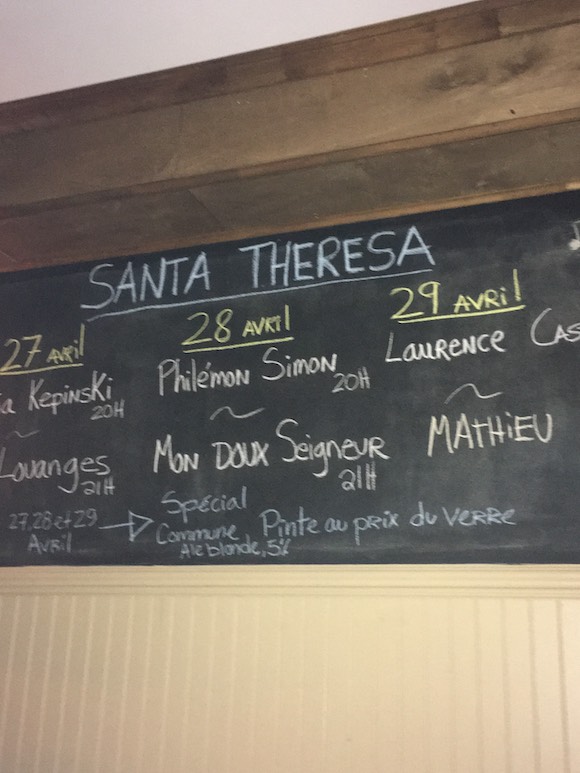 SANTA THERESA
27 AVRIL
Kepinski
20H
~
Louanges
21H
28 AVRIL
Philémon Simon
20H
~
MON DOUX Seigneur
21H
29 AVRIL
LAURENCE CAS
~
MATHIEU
27, 28 et 29
AVRIL
Spécial
Commune
Ale blonde, 5%
Pinte au prix du verre